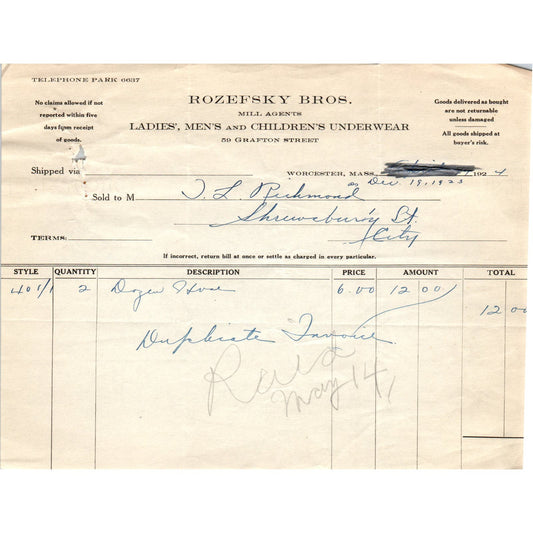 TELEPHONE PARK 6637
No claims allowed if not
reported within five
days from receipt
of goods.
ROZEFSKY BROS.
MILL AGENTS
LADIES', MEN'S AND CHILDREN'S UNDERWEAR
59 GRAFTON STREET
Goods delivered as bought
are not returnable
unless damaged
All goods shipped at
buyer's risk.
Shipped via
WORCESTER, MASS. 1924
as Dec. 19, 1923
Sold to M J. L. Richmond
Shrewsbury St.
City
TERMS:
If incorrect, return bill at once or settle as charged in every particular.
STYLE QUANTITY DESCRIPTION PRICE AMOUNT TOTAL
401/1 2 Dozen Hose 6.00 12 00
12 00
Duplicate Invoice
May 14